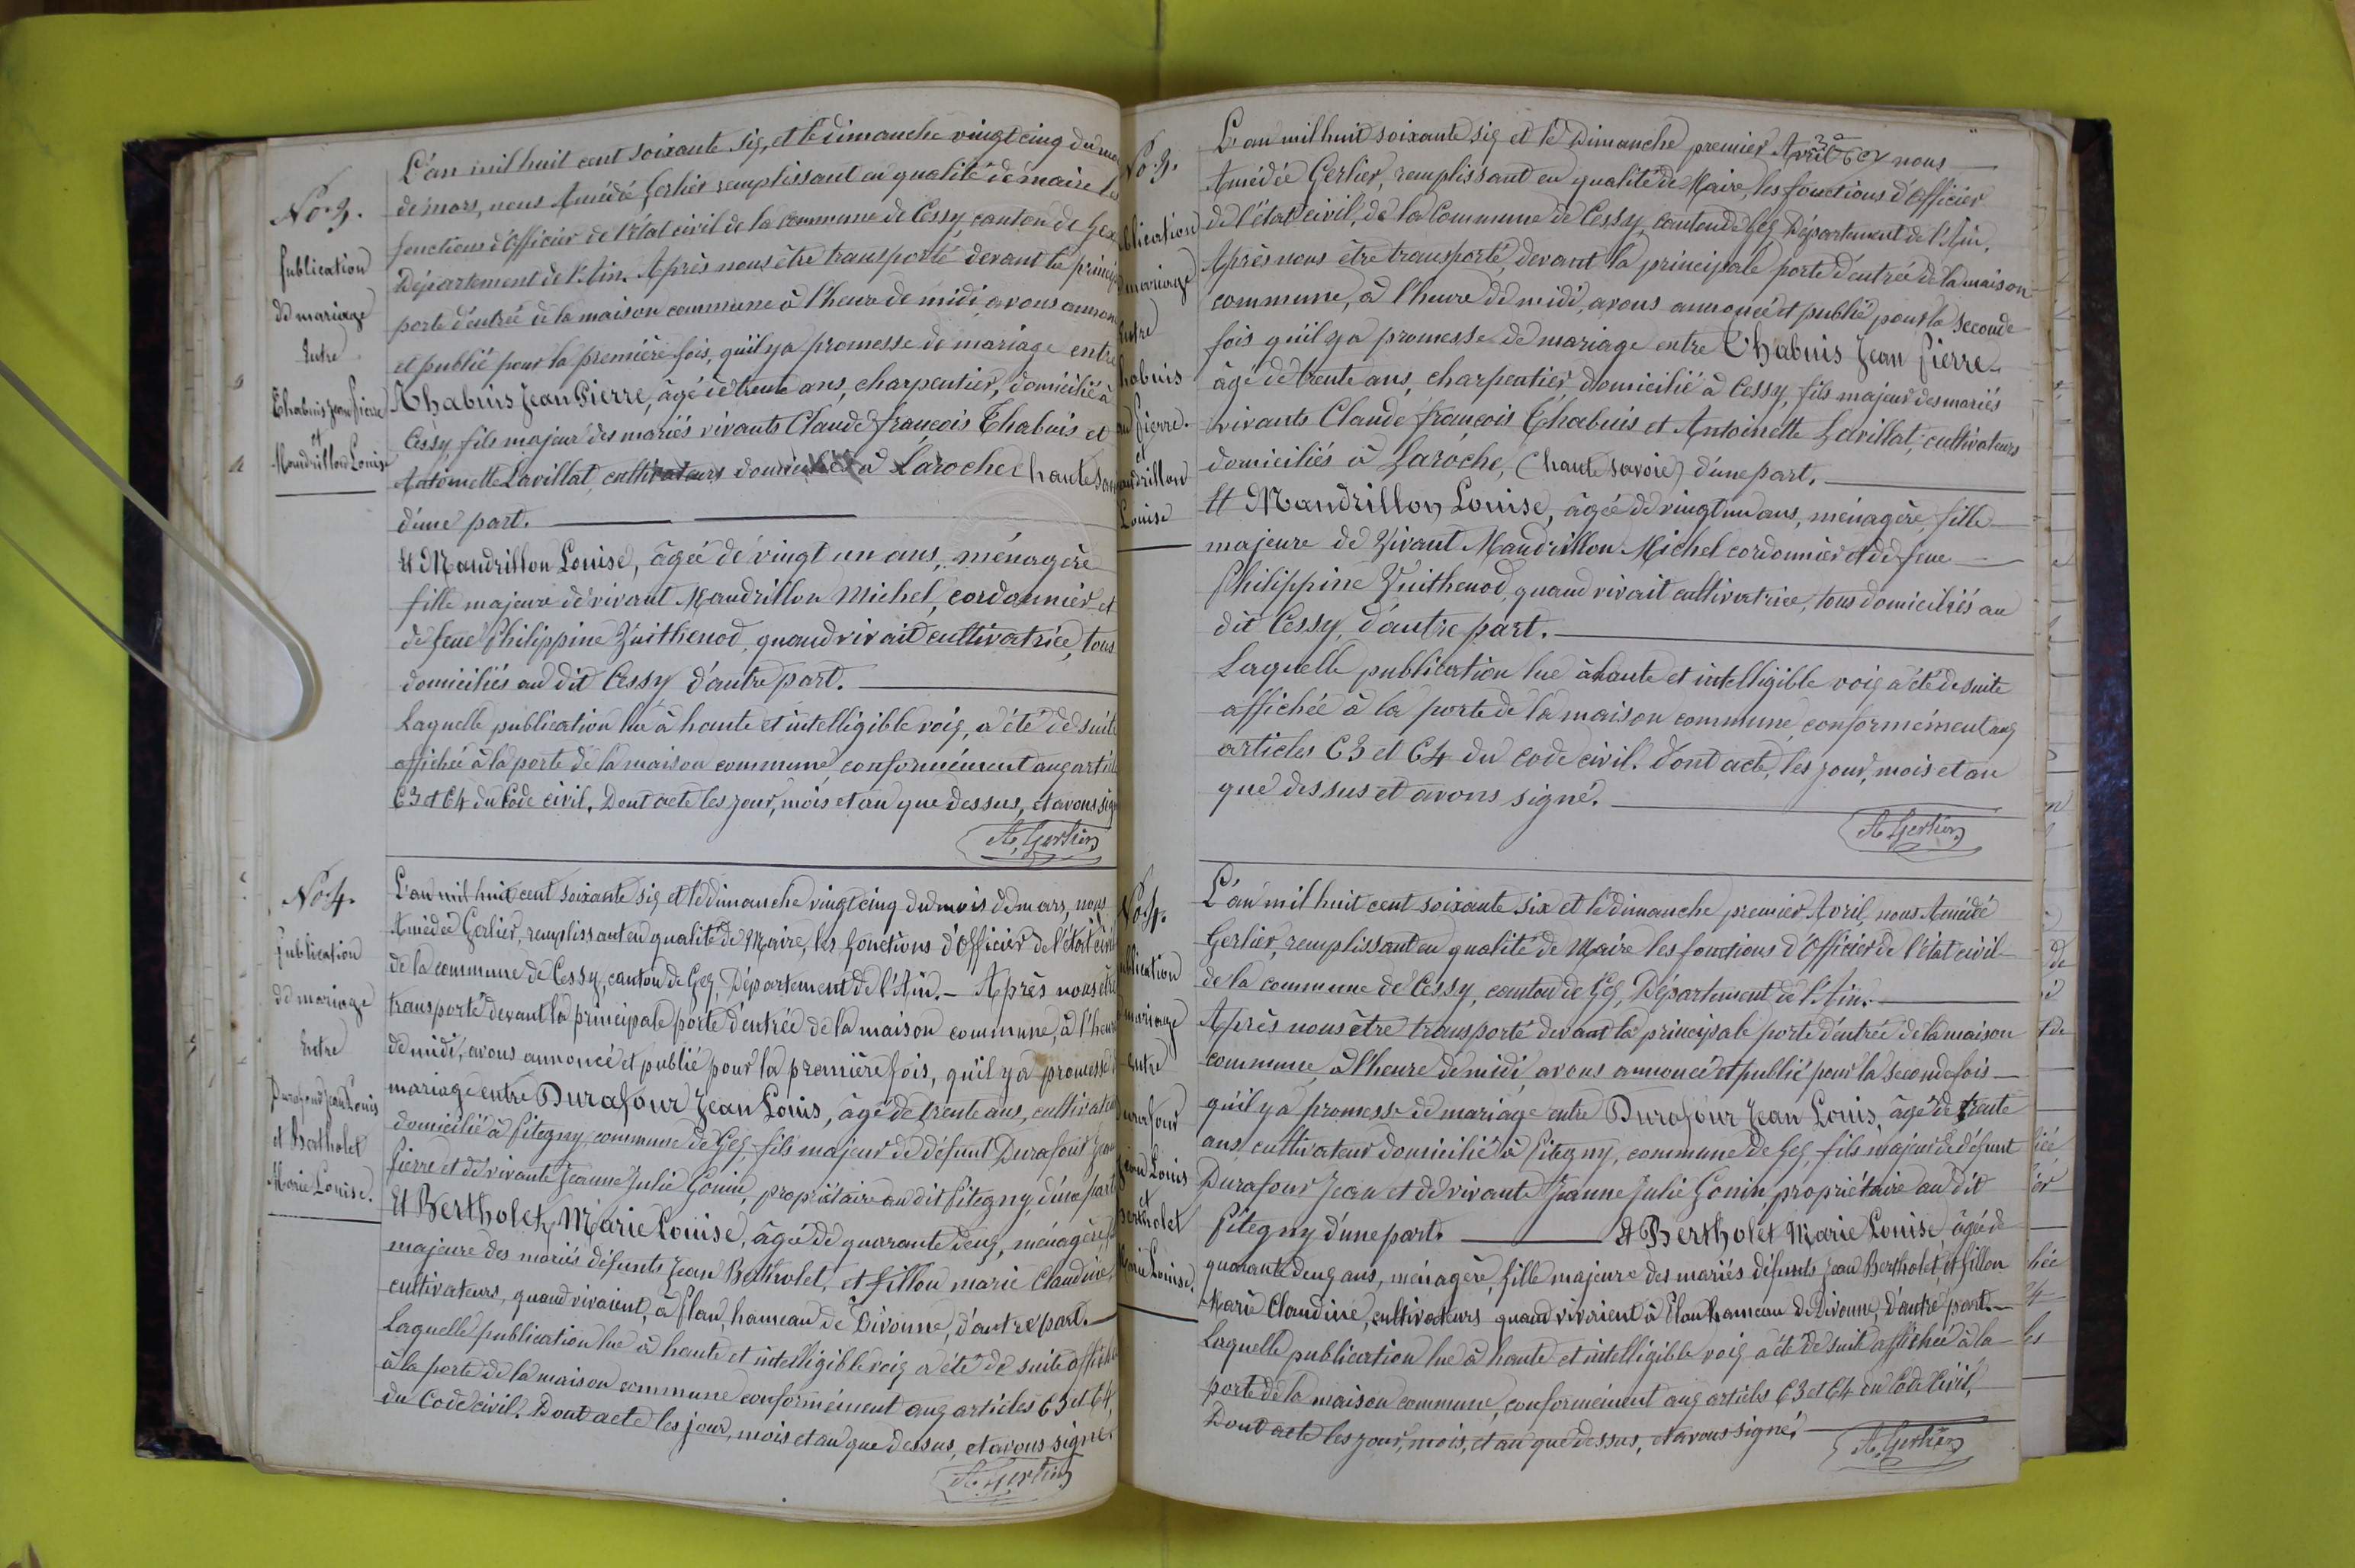 No. 3.
Publication
de mariage
Entre
Thabuis Jean Pierre
et
Mandrillon Louise
L'an mil huit cent soixante six, et le dimanche vingt cinq du
de mars, nous Amédé Gerlier remplissant en qualité de maire les
fonctions d'Officier de l'état civil de la commune de Cessy, canton de Gex
Département de l'Ain. Après nous être transporté devant la
porte d'entrée de la maison commune à l'heure de midi, avons
et publié pour la première fois, qu'il y a promesse de mariage entre
Thabuis Jean Pierre, âgé de trente ans, charpentier, domicilié à
Cessy, fils majeur des mariés vivants Claude françois Thabuis et
Antoinette Lavillat, cultivateurs à Laroche haute
d'une part.
Et Mandrillon Louise, âgée de vingt un ans, ménagère
fille majeure de vivant Mandrillon Michel, cordonnier et
de feue Philippine Vuithenod, quand vivait cultivatrice, tous
domiciliés au dit Cessy d'autre part.
Laquelle publication lue à haute et intelligible voix, a été de suite
affichée à la porte de la maison commune conformément aux
63 et 64 du Code civil. Dont acte les jour, mois et an que dessus, et avons
A. Gerlier
No. 4.
Publication
de mariage
Entre
Durafour Jean Louis
et Bertholet
Marie Louise.
L'an mil huit cent soixante six et le dimanche vingt cinq du mois de mars, nous
Amédée Gerlier, remplissant en qualité de Maire, les fonctions d'Officier de l'état civil
de la commune de Cessy, canton de Gex, Département de l'Ain. — Après nous être
transporté devant la principale porte d'entrée de la maison commune, à l'heure
de midi, avons annoncé et publié pour la première fois, qu'il y a promesse
mariage entre Durafour Jean Louis, âgé de trente ans, cultivateur
domicilié à Pitegny, commune de Gex, fils majeur de défunt Durafour Jean
Pierre et de vivante Jeanne Julie Gonin, propriétaire au dit Pitegny, d'une part
Et Bertholet Marie Louise, âgée de quarante deux, ménagère,
majeure des mariés défunts Jean Bertholet, et fillon marie Claudine,
cultivateurs, quand vivaient, à Plan, hameau de Divonne, d'autre part.
Laquelle publication lue à haute et intelligible voix a été de suite
à la porte de la maison commune conformément aux articles 63 et 64,
du Code civil. Dont acte les jour, mois et an que dessus, et avons signé.
A. Gerlier
No. 3.
mariage
Louise
L'an mil huit soixante six et le Dimanche premier Avril nous
Amédée Gerlier, remplissant en qualité de Maire, les fonctions d'Officier
de l'état civil, de la Commune de Cessy, canton de Gex Département de l'Ain.
Après nous être transporté, devant la principale porte d'entrée de la maison
commune, à l'heure de midi, avons annoncé et publié pour la seconde
fois qu'il y a promesse de mariage entre Thabuis Jean Pierre
âgé de trente ans, charpentier domicilié à Cessy, fils majeur des mariés
vivants Claude françois Thabuis et Antoinette Lavillat, cultivateurs
domiciliés à Laroche, (haute savoie) d'une part.
Et Mandrillon Louise, âgée de vingt un ans, ménagère, fille
majeure de Vivant Mandrillon Michel cordonnier et de feue
Philippine Vuithenod, quand vivait cultivatrice, tous domiciliés au
dit Cessy, d'autre part.
Laquelle publication lue à haute et intelligible voix a été de suite
affichée à la porte de la maison commune, conformément aux
articles 63 et 64 du code civil. Dont acte, les jour, mois et an
que dessus et avons signé.
A. Gerlier
No. 4.
mariage
entre
Durafour
Jean Louis
et
Bertholet
Marie Louise.
L'an mil huit cent soixante six et le dimanche premier Avril, nous Amédé
Gerlier, remplissant en qualité de Maire les fonctions d'Officier de l'état civil
de la commune de Cessy, canton de Gex, Département de l'Ain.
Après nous être transporté devant la principale porte d'entrée de la maison
commune, à l'heure de midi, avons annoncé et publié pour la seconde fois
qu'il y a promesse de mariage entre Durafour Jean Louis, âgé de trente
ans, cultivateur domicilié à Pitegny, commune de Gex, fils majeur de défunt
Durafour Jean et de vivante Jeanne Julie Gonin, propriétaire au dit
Pitegny d'une part. Et Bertholet Marie Louise, âgée de
quarante deux ans, ménagère, fille majeure des mariés défunts Jean Bertholet, et fillon
Marie Claudine, cultivateurs quand vivaient à Plan hameau de Divonne, d'autre part.
Laquelle publication lue à haute et intelligible voix a été de suite affichée à la
porte de la maison commune, conformément aux articles 63 et 64 du Code Civil.
Dont acte les jour, mois, et an que dessus, et avons signé.
A. Gerlier